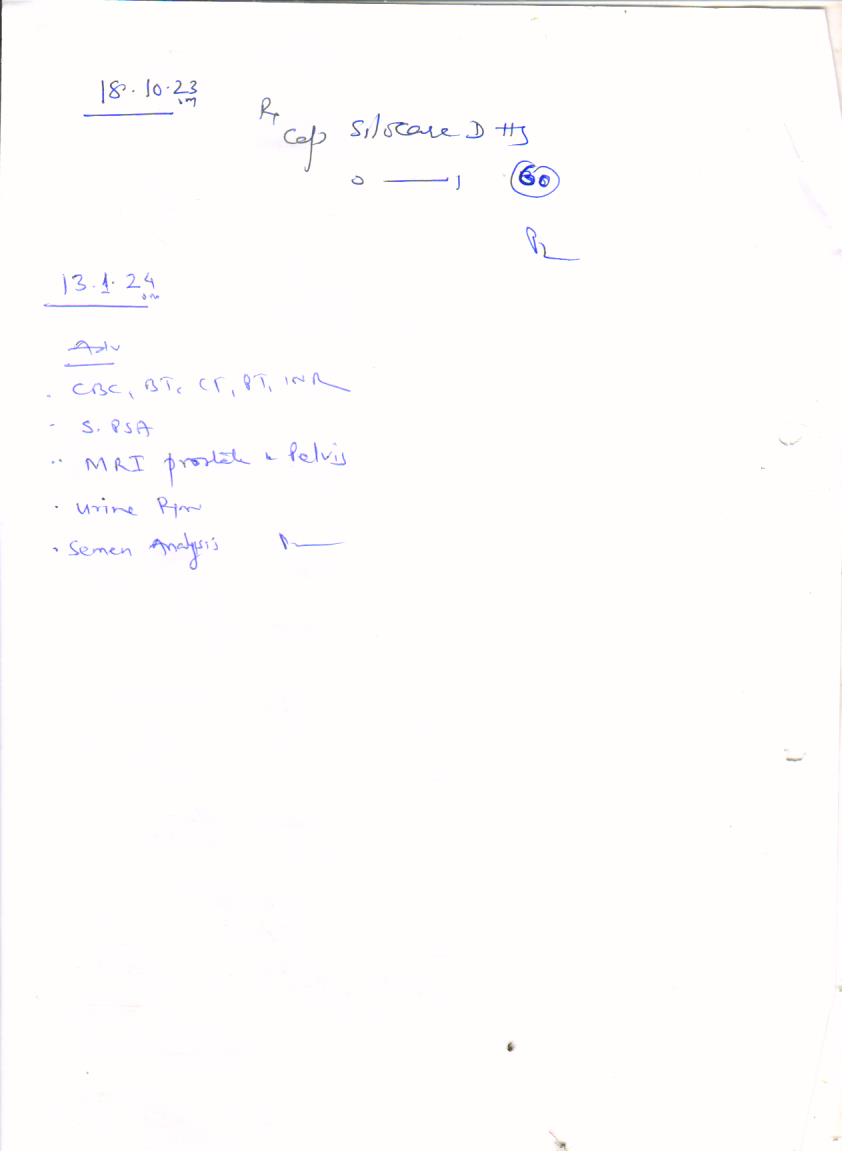 18.10.23
Rx
Cap Silocare D HS
0 —— 1 60
13.1.24
Adv
. CBC, BT, CT, PT, INR
- S. PSA
.. MRI prostate & Pelvis
. Urine R/m
. Semen Analysis